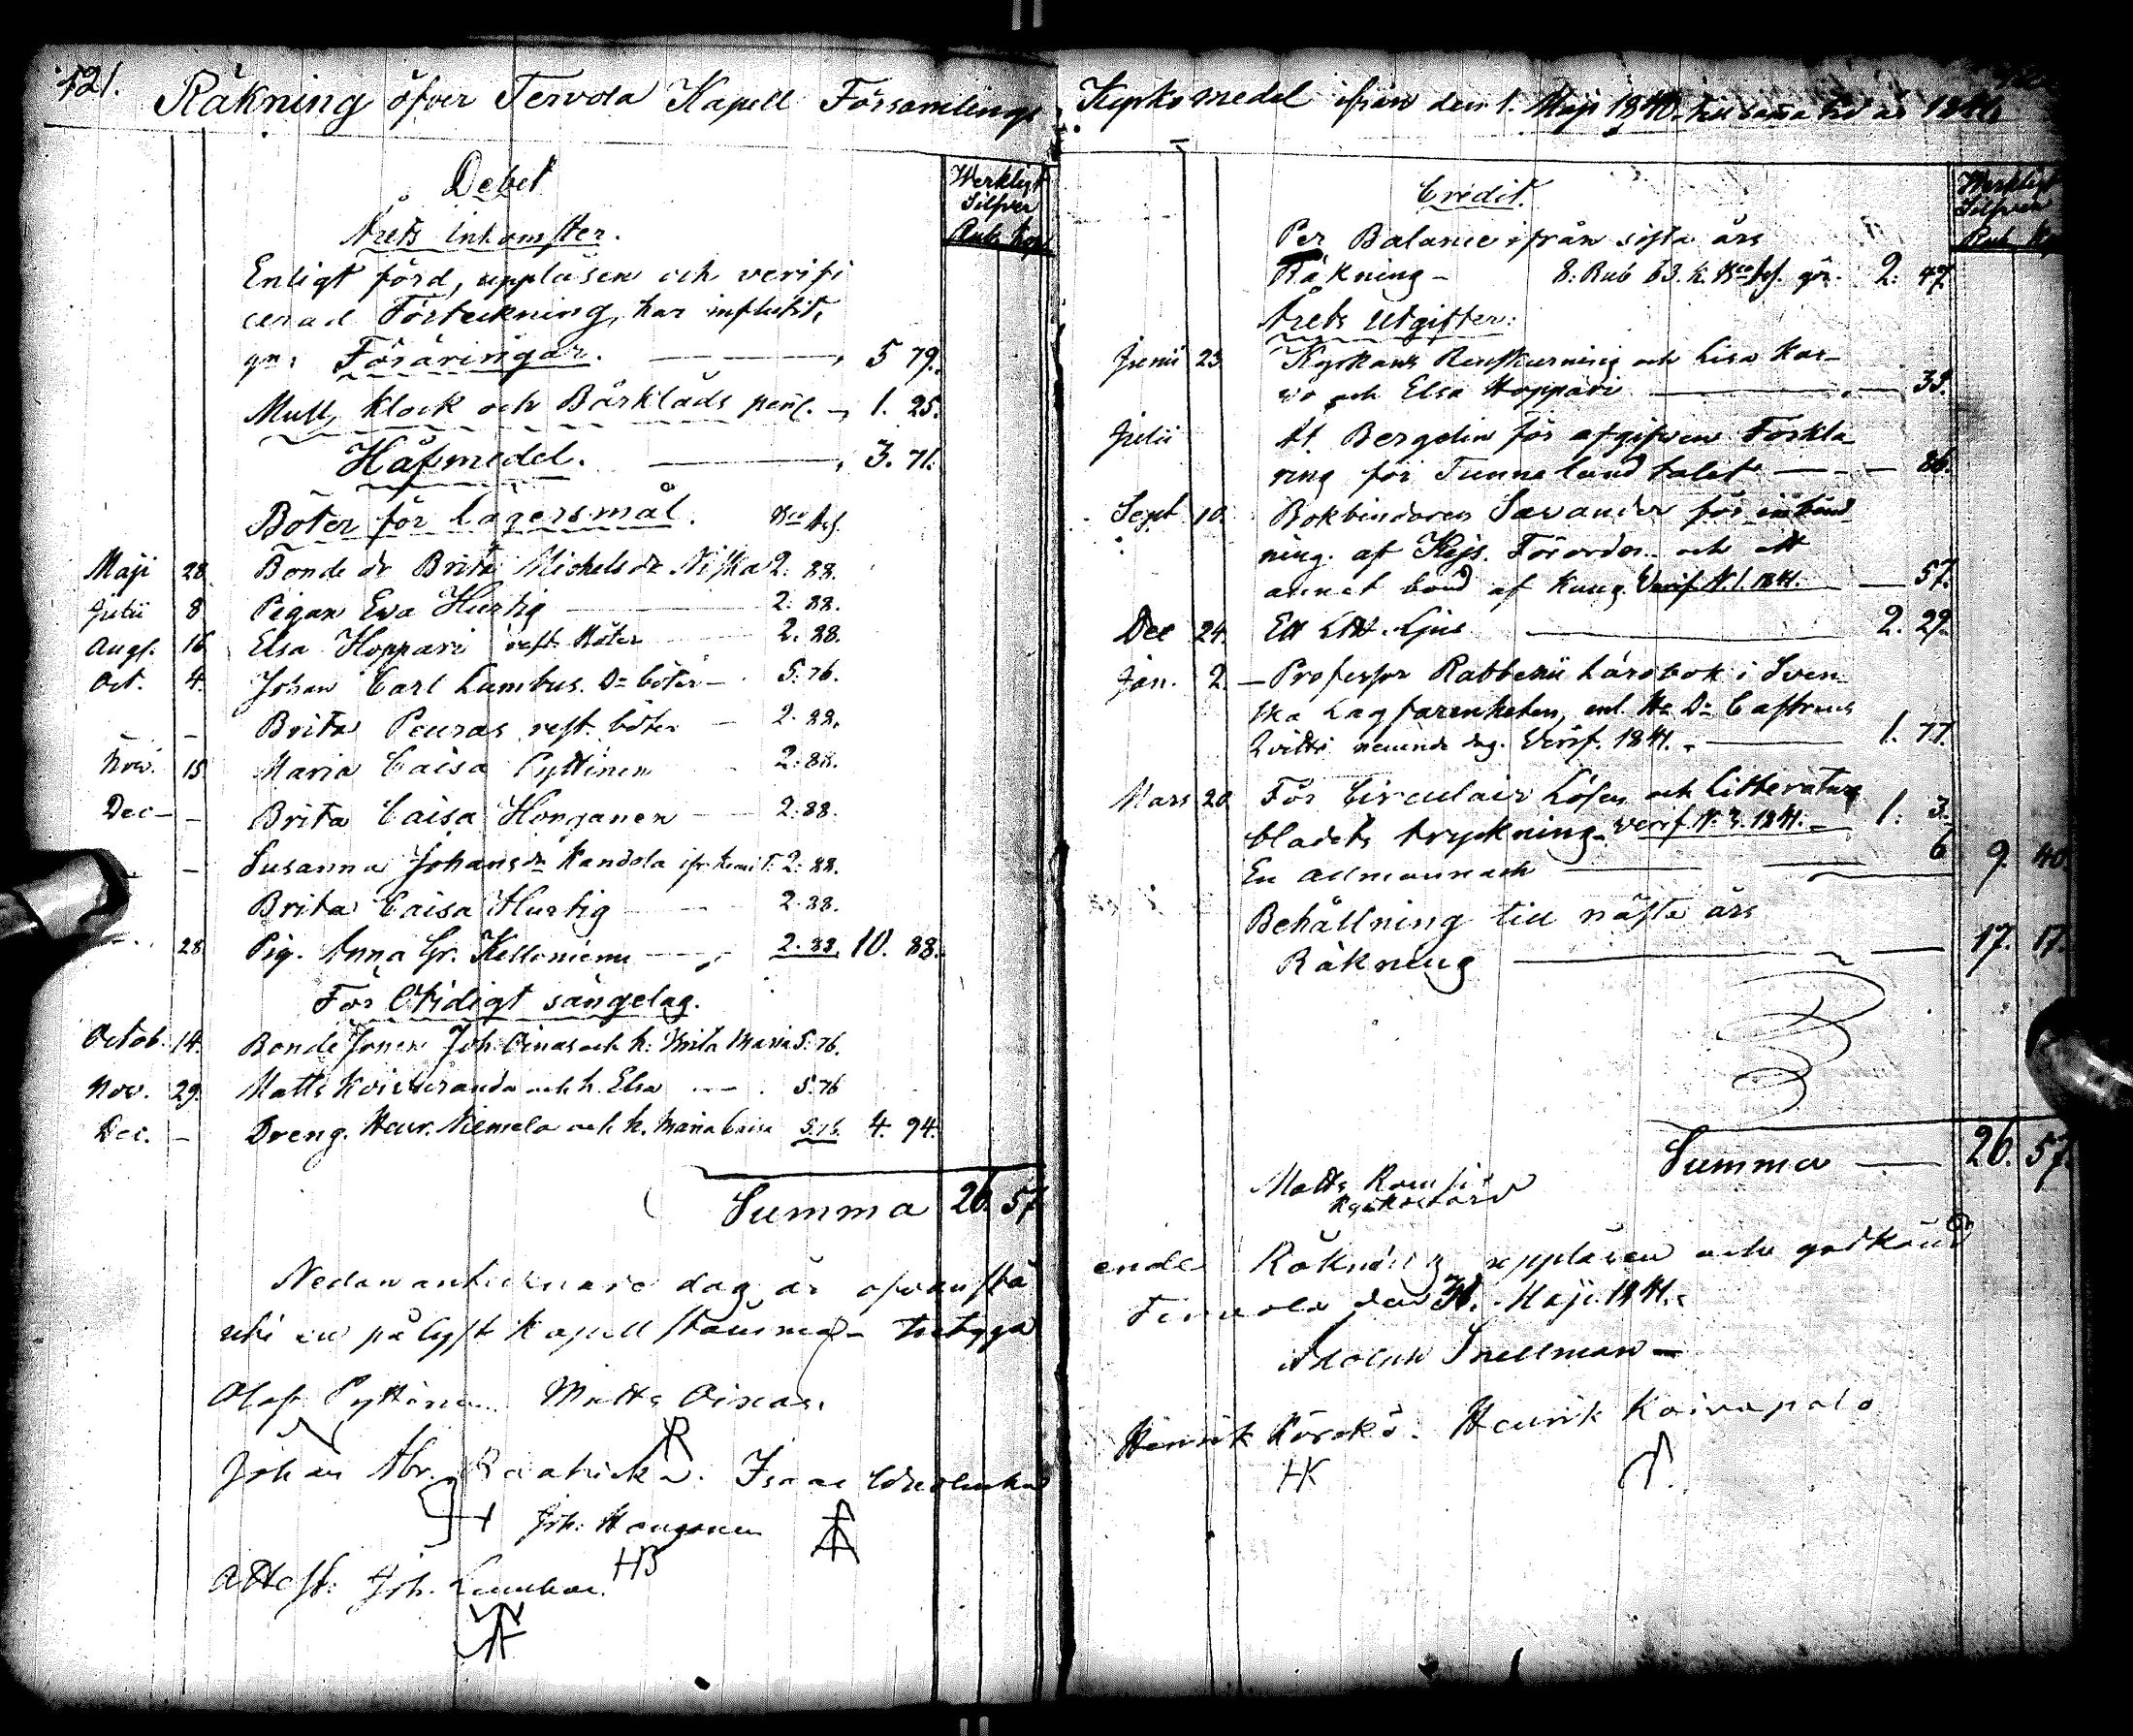 121.
Räkning öfver Tervola Kapell Församlings
Debet
Werkligt
Silfver
Rub. Kop.
Årets inkomster.
Enligt förd, uppläsen och verifi
cerad Förteckning, har influtit,
gn: Föräringar. — 5 79.
Mull, Klock och Bårkläds peng. — 1. 25.
Håfmedel. — 3. 71.
Böter för Lägersmål. Bco Ass.
Maji 28. Bonde dr Brita Michelsdr Niska 2. 88.
Julii 8 Pigan Eva Hurtig — 2. 88.
Augs. 16 Elsa Hoppari rest. böter 2. 88.
Oct. 4. Johan Carl Lumbus. Do böter — 5. 76.
— Brita Peuras rest. böter — 2. 88.
Nov. 15 Maria Caisa Pyttinen 2. 88.
Dec — — Brita Caisa Honganen — 2. 88.
— Susanna Johansdr Kandola ifr. Kemi 2. 88.
Brita Caisa Hurtig 2. 88.
28 Pig. Anna Gr. Kelloniemi — 2. 88. 10. 88.
För Otidigt sängelag.
Octob. 14. Bonde Sonen Joh. Oinas och h. Brita Maria 5. 76.
Nov. 29. Matts Koivuranda och h. Elsa — 5. 76
Dec. — Dreng. Henr. Niemelä och h. Maria Caisa 5. 76. 4. 94.
Summa 26. 57
Nedanantecknare dag är ofvanstå
uti en pålyst Kapell stämma
Olof Pyttinen Matts Oinas.
Johan Abr. Isaac
Joh. Honganen
HB
Attest. Joh.
Kyrko medel ifrån den 1. Maji 1840 till samma tid år 1841.
Credit.
Werkligt
Silfver
Rub. K.
Per Balance ifrån sista års
Räkning — 8: Rub 63. K. Bco Ass. gör. 2. 47.
Årets Utgifter:
Junii 23 Kyrkans Renskurning och Lisa Kar-
vo och Elsa Hoppari — 35.
Julii At Bergelin för afgifven Förkla
ring för Tunnelandtalet — 86.
Sept 10. Bokbindaren Savander för inbind
ning. af Kejs. Förordn. och ett
annat band af Kung. Verif. N. 1. 1841. — 57.
Dec 24. Ett Ljus — 2. 29.
Jan. 2. — Professor Rabbenii Lärobok i Sven
ska Lagfarenheten, enl. Hr Dr Castrens
Qvitto nämnde dag. Verif. 1841. — 1. 77.
Mars 20 För Circulair Lösen och Litteratur
bladets tryckning. Verif. N. 3. 1841. — 1. 3.
En Allmannach — 6 9. 40.
Behållning till nästa års
Räkning — 17. 17.
Summa — 26. 57.
Matts
Kyrkovärd
ende Räkning uppläsen och godkänd
Tervola den 31. Maji 1841.
Adolph Snellman —
Henrik Körkö. Henrik Koivapalo
HK